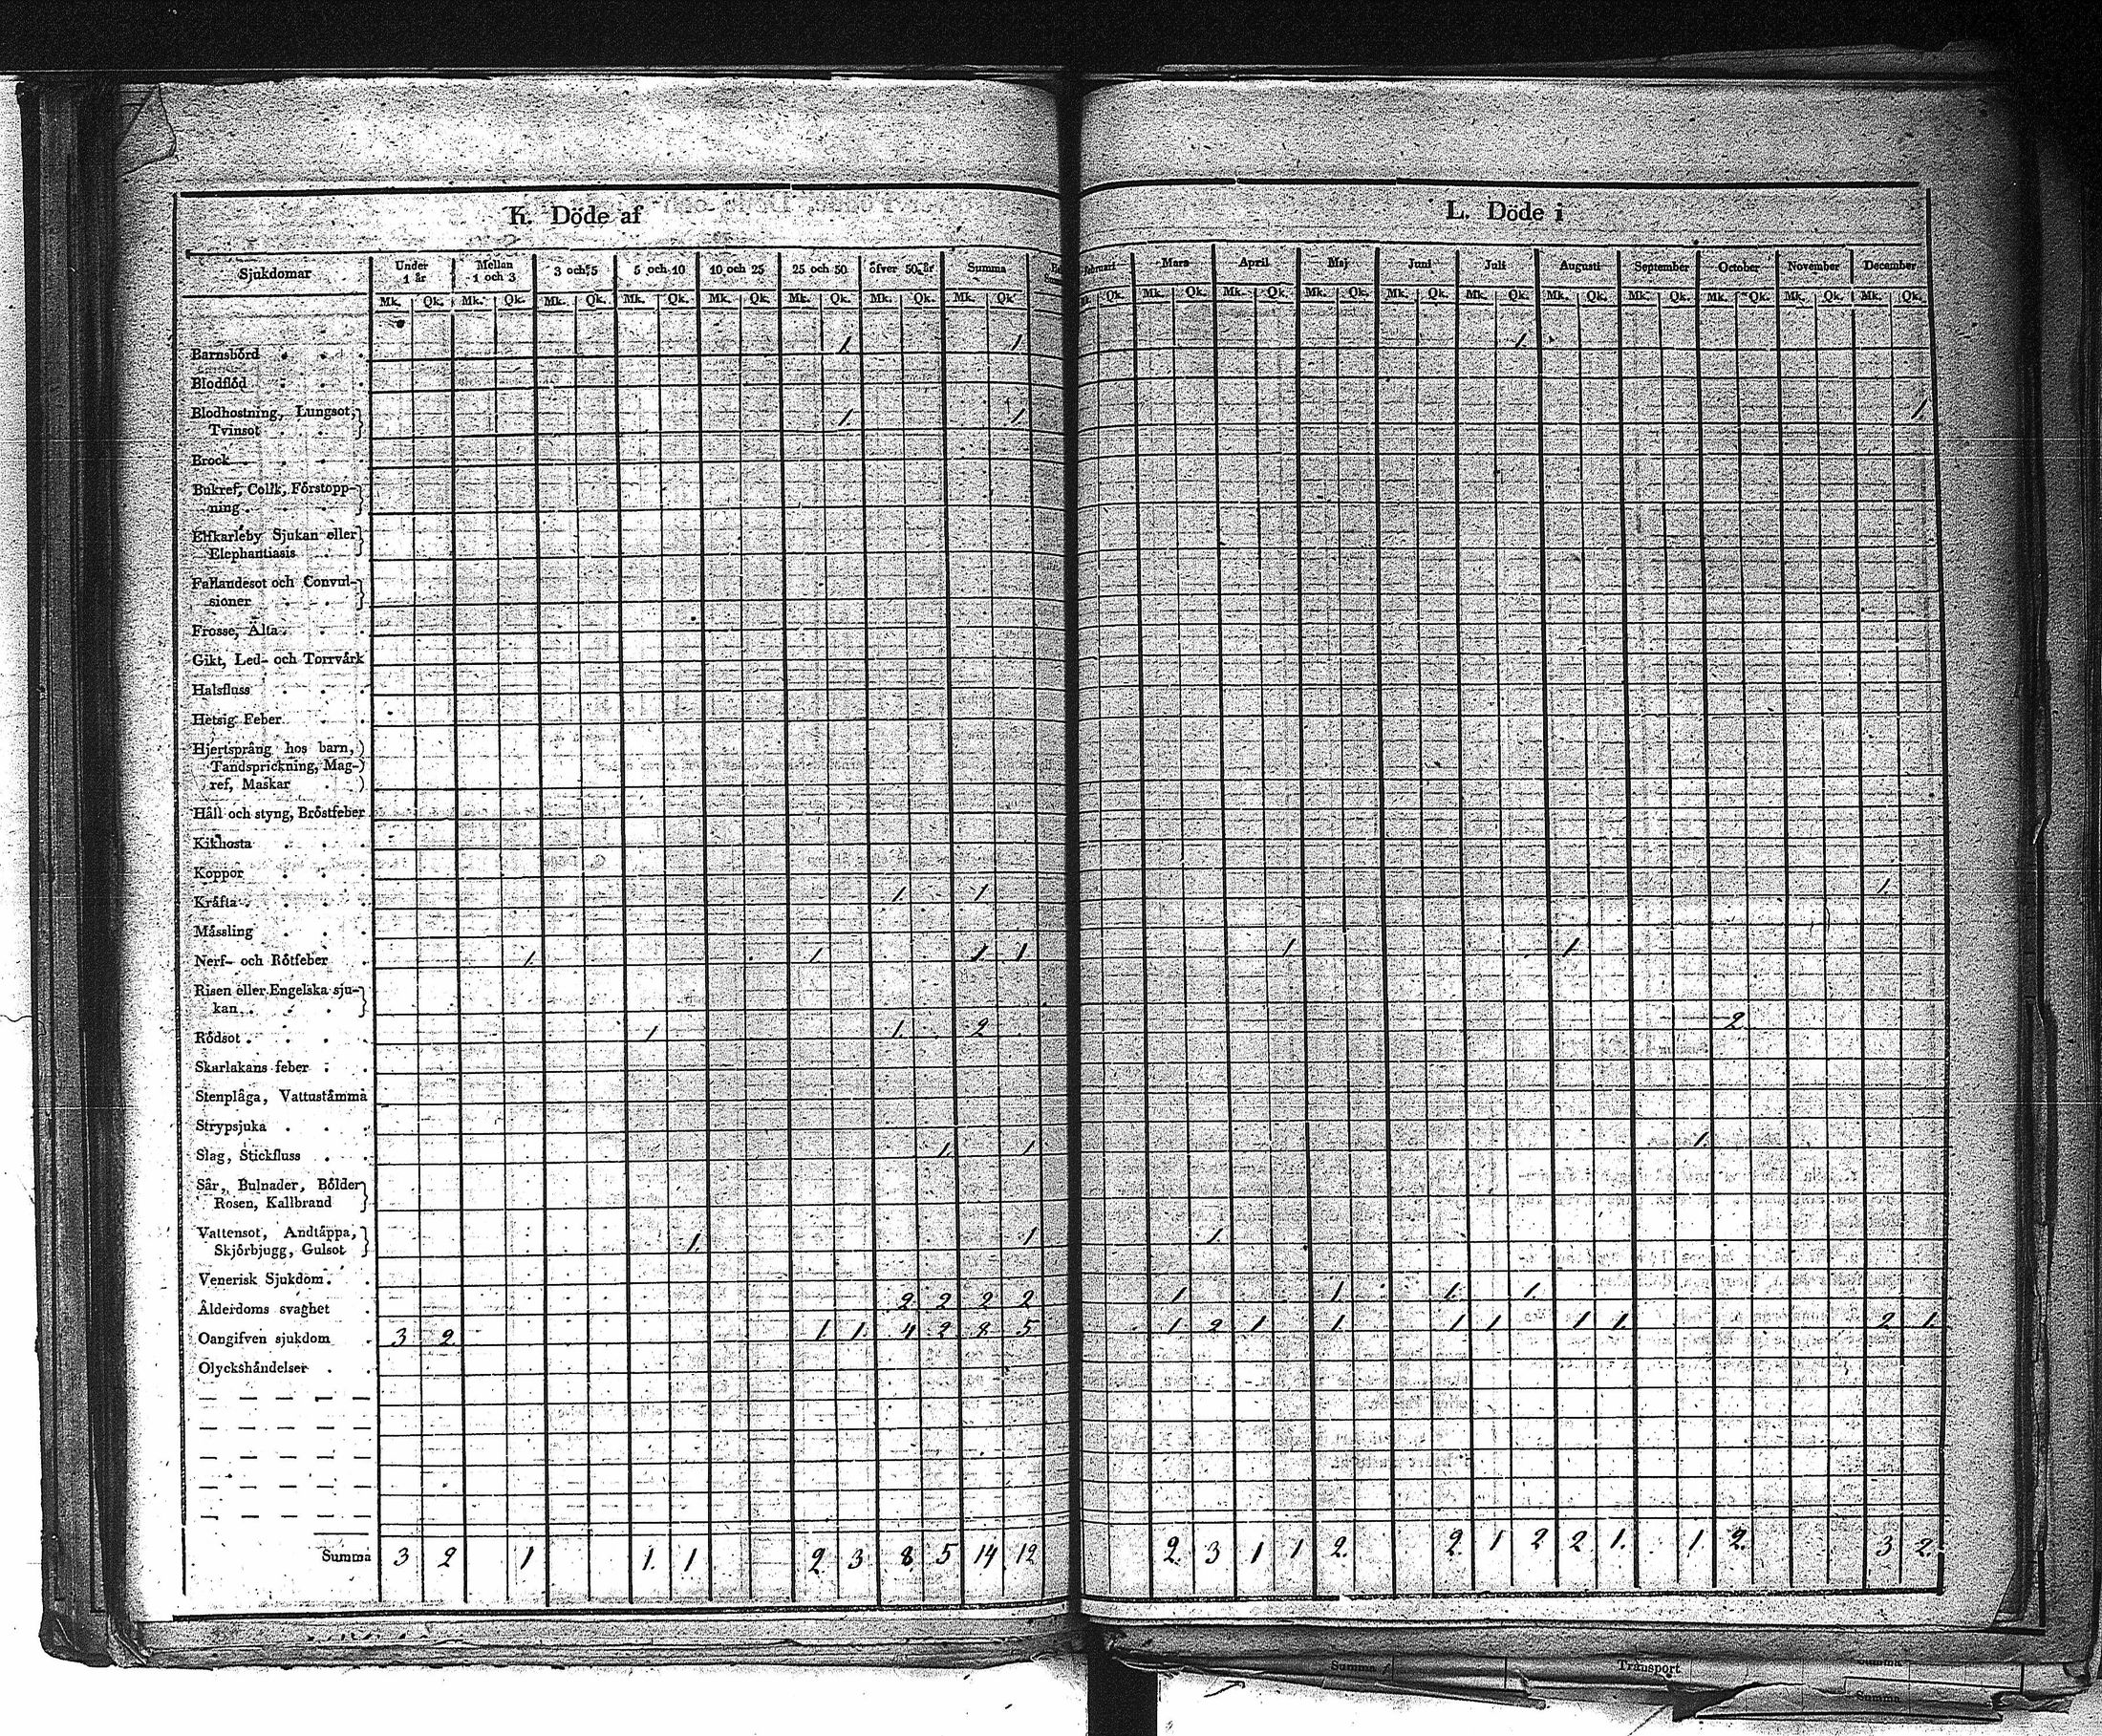 K. Döde af
L. Döde i
Sjukdomar Under 1 år Mellan 1 och 3 3 och 5 5 och 10 10 och 25 25 och 50 öfver 50 år Summa
Mars April Maj Juni Juli Augusti September October November December
Mk. Qk. Mk. Qk. Mk. Qk. Mk. Qk. Mk. Qk. Mk. Qk. Mk. Qk. Mk. Qk.
Qk. Mk. Qk. Mk. Qk. Mk. Qk. Mk. Qk. Mk. Qk. Mk. Qk. Mk. Qk. Mk. Qk. Mk. Qk. Mk. Qk.
Barnsbörd 1 1 1
Blodflöd
Blodhostning, Lungsot,
Tvinsot 1 1 1
Brock
Bukref, Colik, Förstopp-
ning
Elfkarleby Sjukan eller
Elephantiasis
Fallandesot och Convul-
sioner
Frosse, Älta
Gikt, Led- och Torrvärk
Halsfluss
Hetsig Feber
Hjertsprång hos barn,
Tandsprickning, Mag-
ref, Maskar
Håll och styng, Bröstfeber
Kikhosta
Koppor
Kräfta 1. 1 1.
Mässling
Nerf- och Rötfeber 1. 1 1 1 1 1
Risen eller Engelska sju-
kan
Rödsot 1 1. 2 2
Skarlakans feber
Stenplåga, Vattustämma
Strypsjuka
Slag, Stickfluss 1. 1 1.
Sår, Bulnader, Bölder
Rosen, Kallbrand
Vattensot, Andtäppa,
Skjörbjugg, Gulsot 1. 1 1.
Venerisk Sjukdom
Ålderdoms svaghet 2 2 2 2 1 1 1 1
Oangifven sjukdom 3 2 1 1 4 2 8 5 1 2 1 1 1 1 1 1 2 1
Olyckshändelser
Summa 3 2 1 1. 1 2 3 8 5 14 12 2 3 1 1 2. 2 1 2 2 1. 1 2. 3 2.
Summa
Transport
Summa
Summa